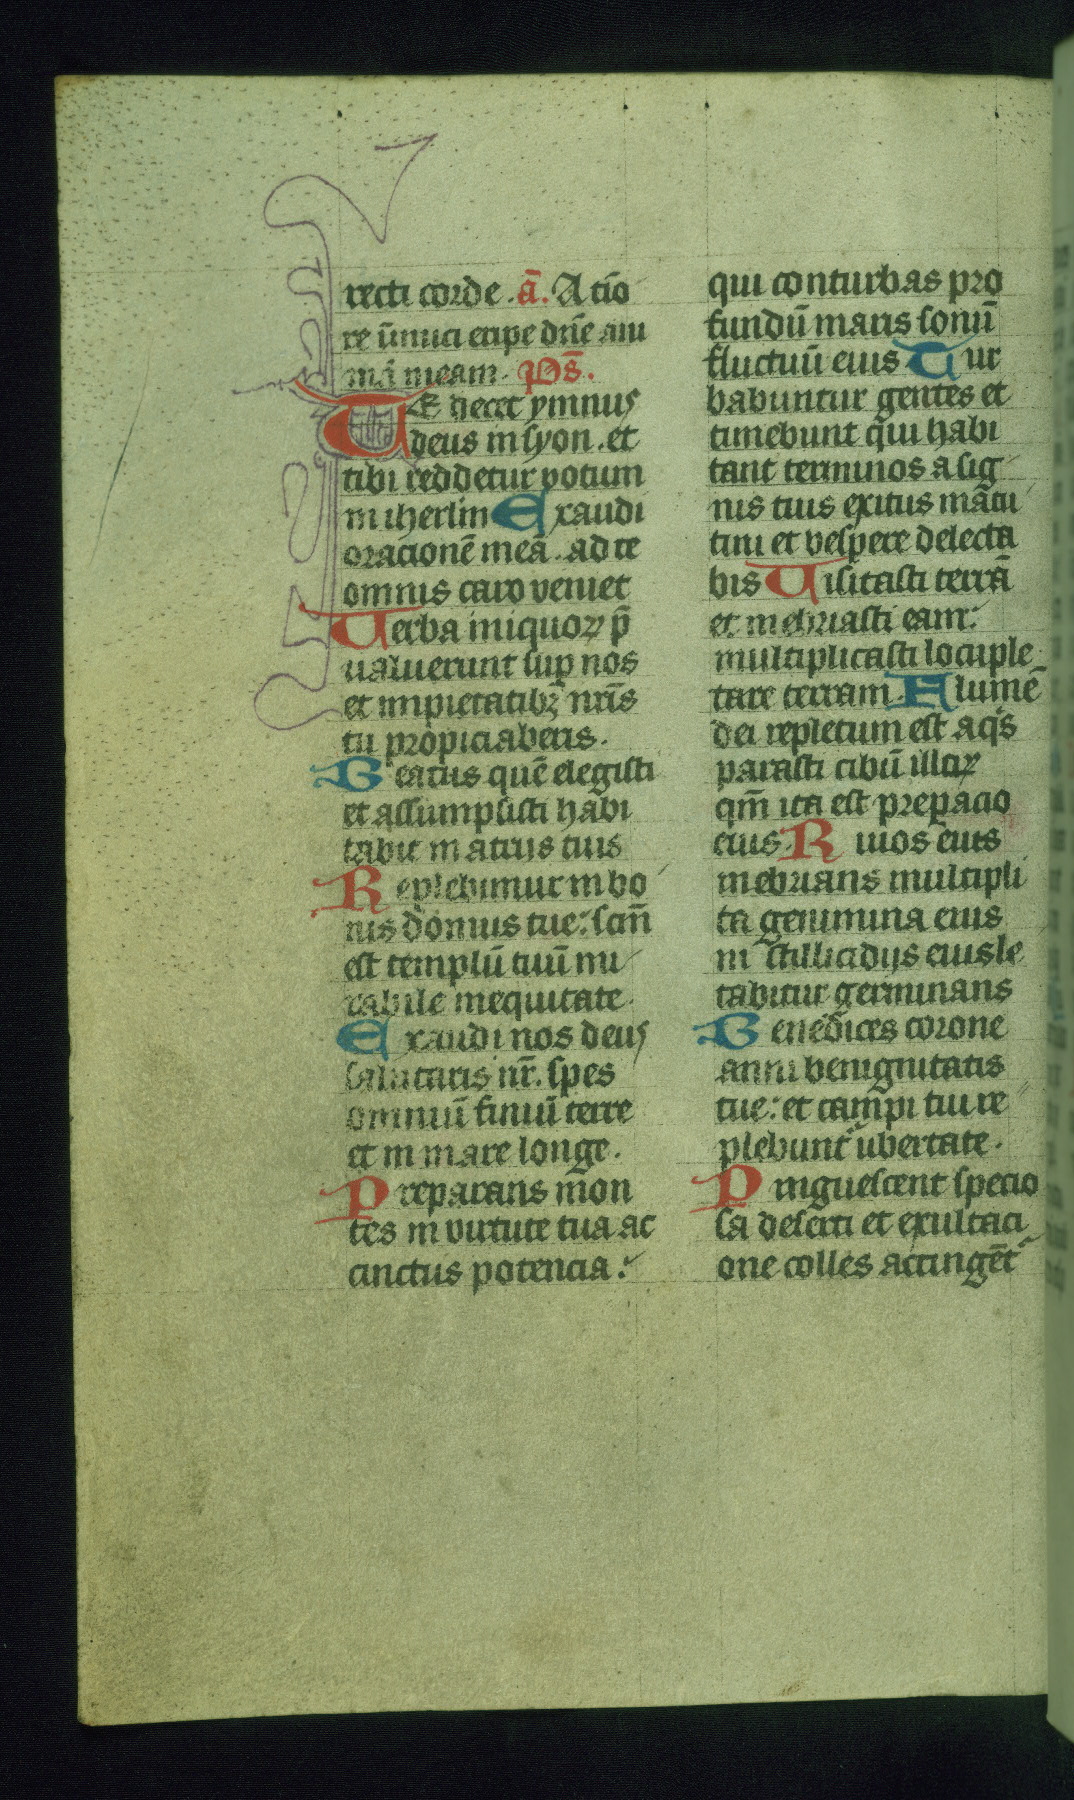 recti corde . ā. A tīo
re īnimici eripe dn̄e ani
mā meam. Ps̄.
TE decet ymnus
deus in syon . et
tibi reddetur votum
in iherlm Exaudi
oracionē meā . ad te
omnis caro veniet
Verba iniquoꝝ p̄
ualuerunt sup nos
et impietatibꝫ nr̄is
tu propiciaberis.
Beatus quē elegisti
et assumpsisti habi
tabit in atrijs tuis
Replebimur in bo
nis domus tue: scm̄
est templū tuū mi
rabile in equitate.
Exaudi nos deus
salutaris nr̄. spes
omniū finiū terre
et in mare longe.
Preparans mon
tes in virtute tua ac
cinctus potencia:
qui conturbas pro
fundū maris sonū
fluctuū eius Tur
babuntur gentes et
timebunt qui habi
tant terminos a sig
nis tuis exitus matu
tini et vespere delecta
bis Visitasti terrā
et inebriasti eam:
multiplicasti lociple
tare terram Flumē
dei repletum est aqs̄
parasti cibū illoꝝ
qm̄ ita est preparacio
eius. Riuos eius
inebrians multipli
ca genimina eius
in stillicidijs eius le
tabitur germinans
Benedices corone
anni benignitatis
tue: et campi tui re
plebunt᷑ ubertate.
Pinguescent specio
sa deserti et exultaci
one colles accingēt᷑